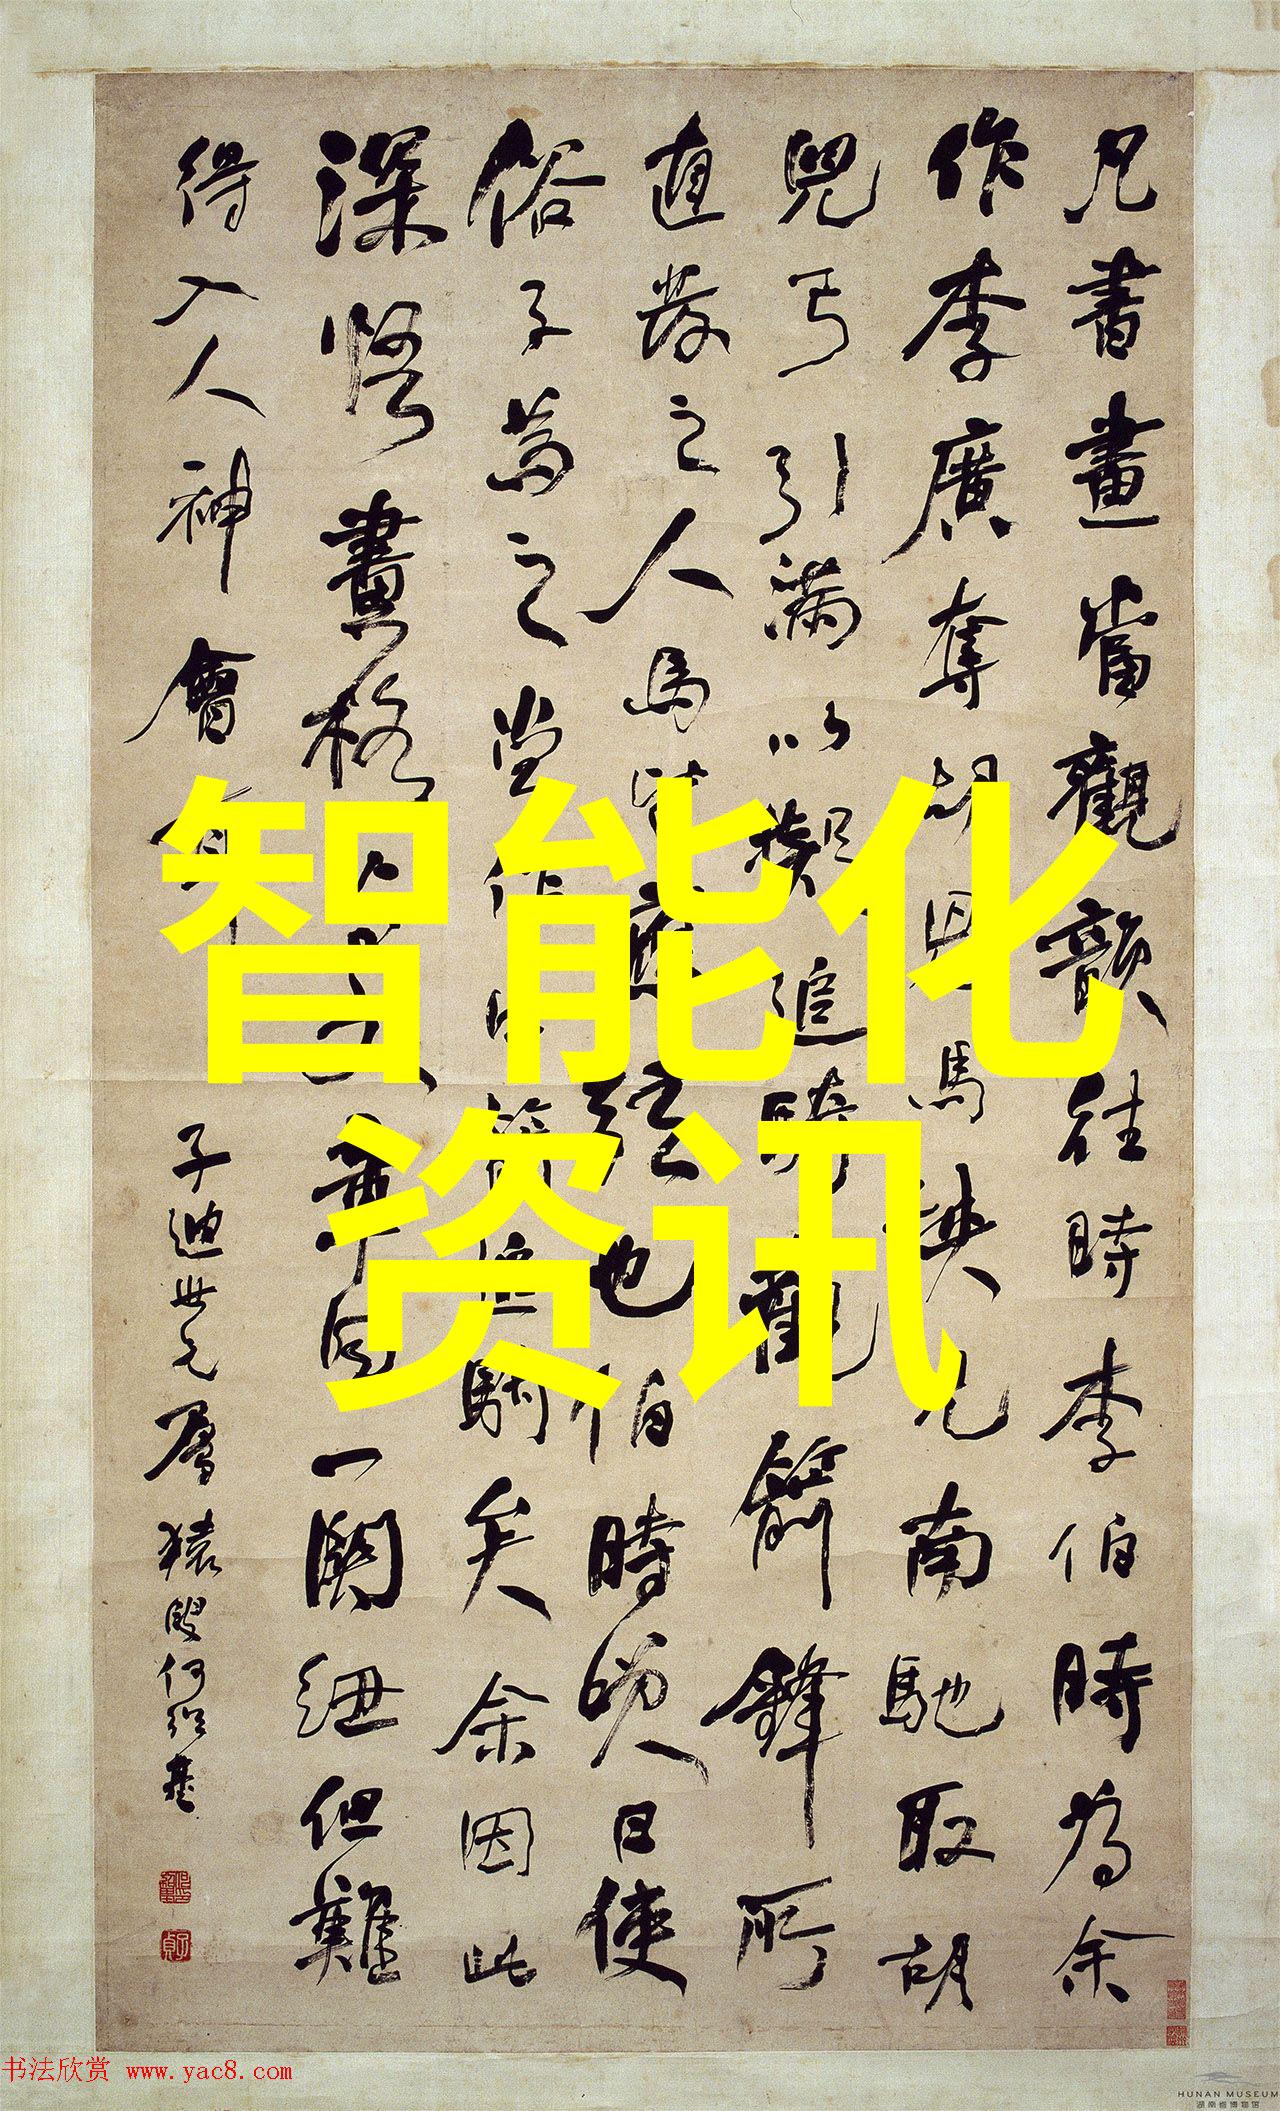 凡書畫當觀韻往時李伯時為余
作李廣奪胡兒馬挾兒南馳取胡
兒弓引滿以擬追騎觀箭鋒所
直發之人馬皆應弦也伯時笑曰使
俗子為之當作中箭追騎矣余因此
深悟畫格此與文章同一關紐但難
得入人神會耳
子迪世兄屬 猿叟何紹基
智能化
资讯
书法欣赏 www.yac8.com
HUNAN MUSEUM
湖南省博物馆